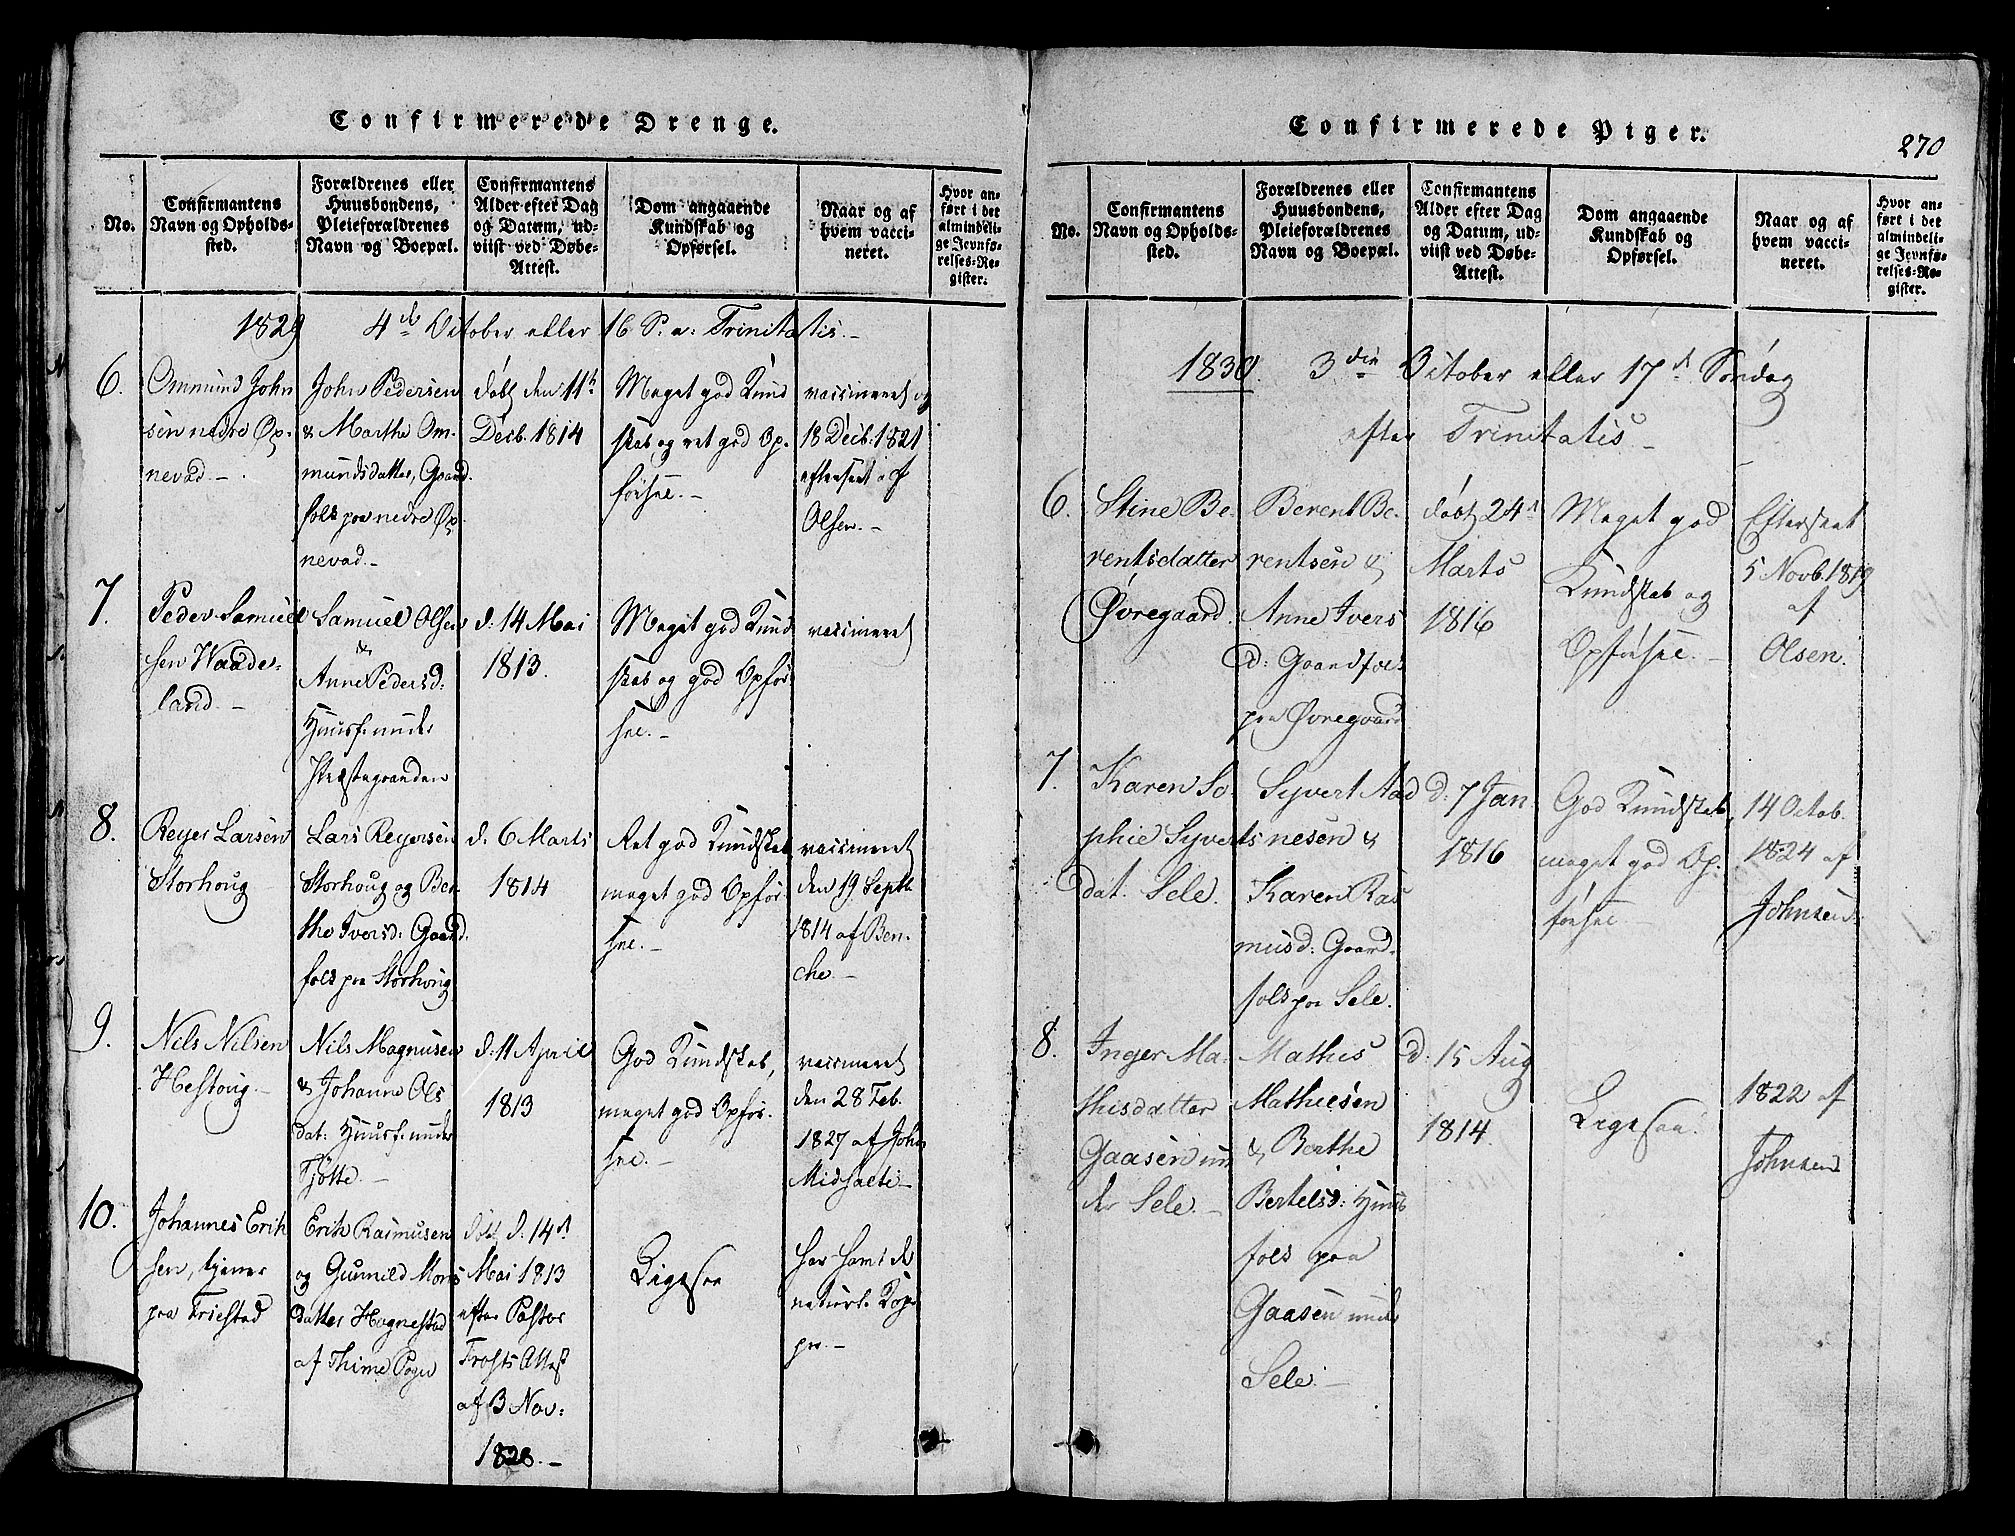 Confirmerede Drenge.
No.
Confirmantens
Navn og Opholds-
sted.
Forældrenes eller
Huusbondens,
Pleieforældrenes
Navn og Boepæl.
Confirmantens
Alder efter Dag
og Datum, ud-
viist ved Døbe-
Attest.
Dom angaaende
Kundskab og
Opførsel.
Naar og af
hvem vacci-
neret.
Hvor an-
ført i det
almindeli-
ge Jevnfø-
relses-Re-
gister.
1829 4de October eller 16 S. a: Trinitatis.-
6.
Ommund John
sen nedre Op-
nevad.-
John Pedersen
& Marthe Om-
mundsdatter, Gaard
folk paa nedre Op
nevad.-
døbt den 11te
Decb. 1814
Meget god Kund
skab og ret god Op-
førsel.-
vaccineret og
18 Decb. 1821
efterseet af
Olsen.-
7.
Peder Samuel
sen Waade-
land.-
Samuel Olsen
&
Anne Pedersd:
Huusf. under
Præstegaarden
d. 14 Mai
1813.
Meget god Kund
skab og god Opfør-
sel.-
vaccineret
8.
Reyer Larsen
Storhoug
Lars Reyersen
Storhoug og Ber-
the Iversd: Gaard-
folk paa Storhoug
d. 6 Marts
1814
Ret god Kundskab
meget god Opfør-
sel.-
vaccineret
den 19 Septb.
1814 af Ben-
che.-
9.
Nils Nilsen
Hestoug.-
Nils Magnusen
& Johanne Ols
dat: Huusf. under
Tjøtte.-
d. 11 April
1813
God Kundskab,
meget god Opfør-
sel.-
vaccineret
den 28 Feb.
1827 af John
Midsaeti-
10.
Johannes Erik
sen, tjener
paa Friestad
Erik Rasmusen
og Gunnild Mons
datter Hognestad
af Thime Sogn
d. 14de
Mai 1813
efter Pastor
Frosts Attest
af 3 Nov:
1828.-
Ligesaa
har havt de
naturl. Kop-
per.-
Confirmerede Piger.
270
No.
Confirmantens
Navn og Opholds-
sted.
Forældrenes eller
Huusbondens,
Pleieforældrenes
Navn og Boepæl.
Confirmantens
Alder efter Dag
og Datum, ud-
viist ved Døbe-
Attest.
Dom angaaende
Kundskab og
Opførsel.
Naar og af
hvem vacci-
neret.
Hvor an-
ført i det
almindeli-
ge Jevnfø-
relses-Re-
gister.
1830. 3die October eller 17de Søndag
efter Trinitatis-
6.
Stine Be-
rentsdatter
Øvregaard.
Berent Be-
rentsen &
Anne Ivers
d: Gaardfolk
paa Øvregaard
døbt 24de
Marts
1816
Meget god
Kundskab og
Opførsel.-
Efterseet
5 Novb. 1819
af
Olsen.
7.
Karen So-
phie Syverts
dat. Sele.
Syvert Aad
nesen &
Karen Ras
musd: Gaard-
folk paa Sele.
d: 7 Jan.
1816
God Kundskab,
meget god Op-
førsel.-
14 Octob.
1824 af
Johnsen.
8.
Inger Ma-
thisdatter
Gaasen un
der Sele.-
Mathis
Mathiesen
& Berthe
Bertelsd: Huus
folk paa
Gaasen under
Sele.-
d: 15 Aug
1814.
Ligesaa.
1822 af
Johnsen